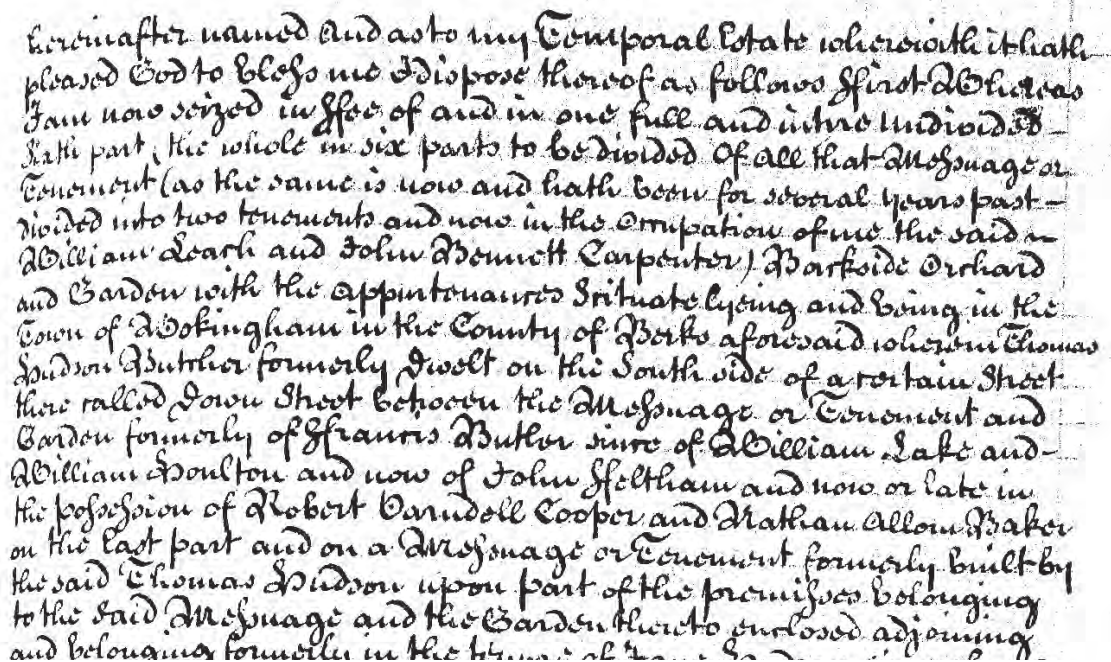 hereinafter named And as to my Temporal Estate wherewith it hath
pleased God to bless me I dispose thereof as follows ffirst Whereas
I am now seized in ffee of and in one full and intire undivided
sixth part, the whole in six parts to be divided Of all that Messuage or
Tenement (as the same is now and hath been for several years past
divided into two tenements and now in the Occupation of me the said
William Leach and John Bennett Carpenter) Backside Orchard
and Garden with the Appurtenances Scituate lyeing and being in the
Town of Wokingham in the County of Berks aforesaid wherein Thomas
Hudson Butcher formerly dwelt on the South side of a certain Street
there called Down Street between the Messuage or Tenement and
Garden formerly of ffrancis Butler since of William Lake and
William Moulton and now of John ffeltham and now or late in
the possession of Robert Varndell Cooper and Nathan Allom Baker
on the East part and on a Messuage or Tenement formerly built by
the said Thomas Hudson upon part of the premisses belonging
to the said Messuage and the Garden thereto enclosed adjoining
and belonging formerly in the tenure of